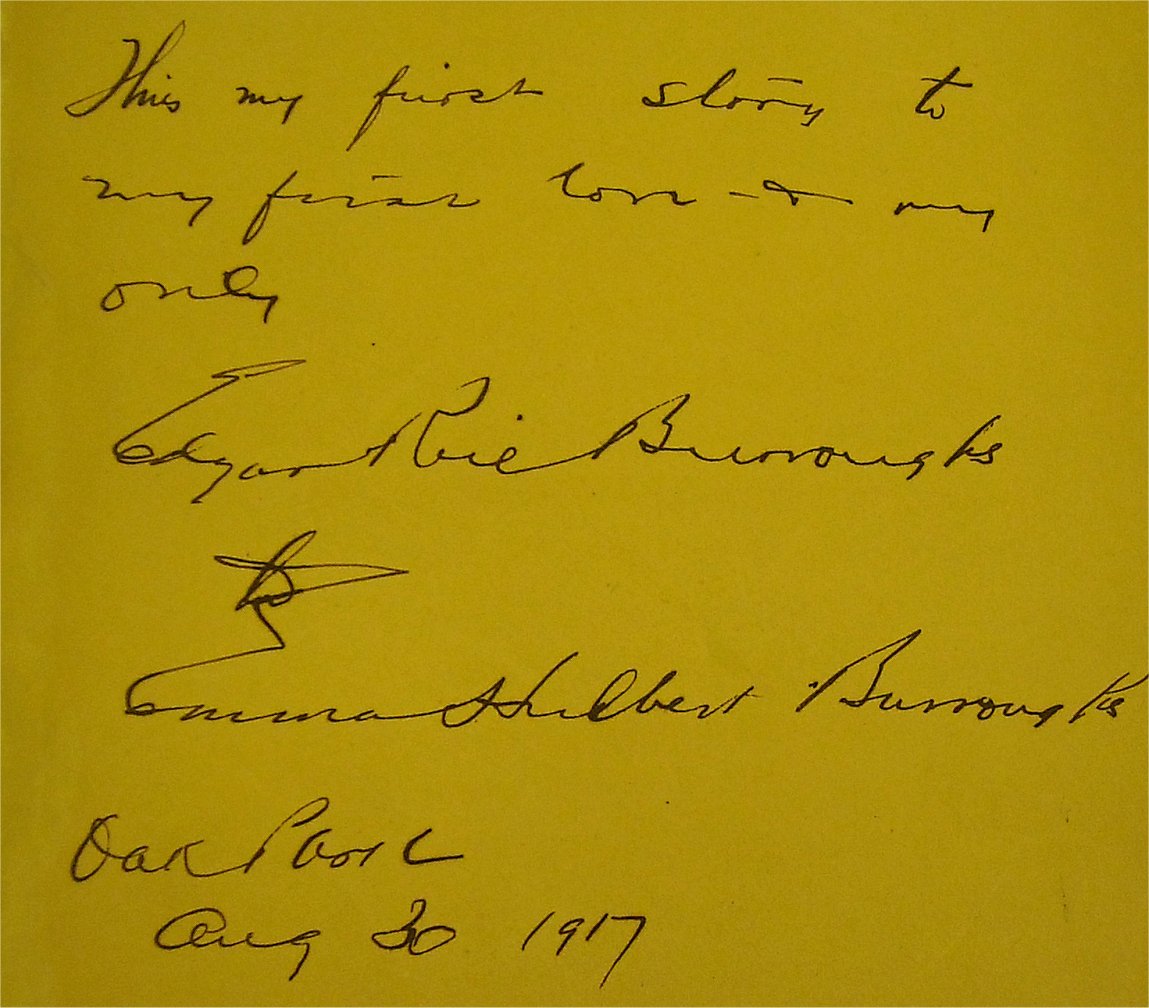 This my first story to
my first love - & my
only
Edgar Rice Burroughs
to
Emma Hulbert Burroughs
Oak Park
Aug 30 1917